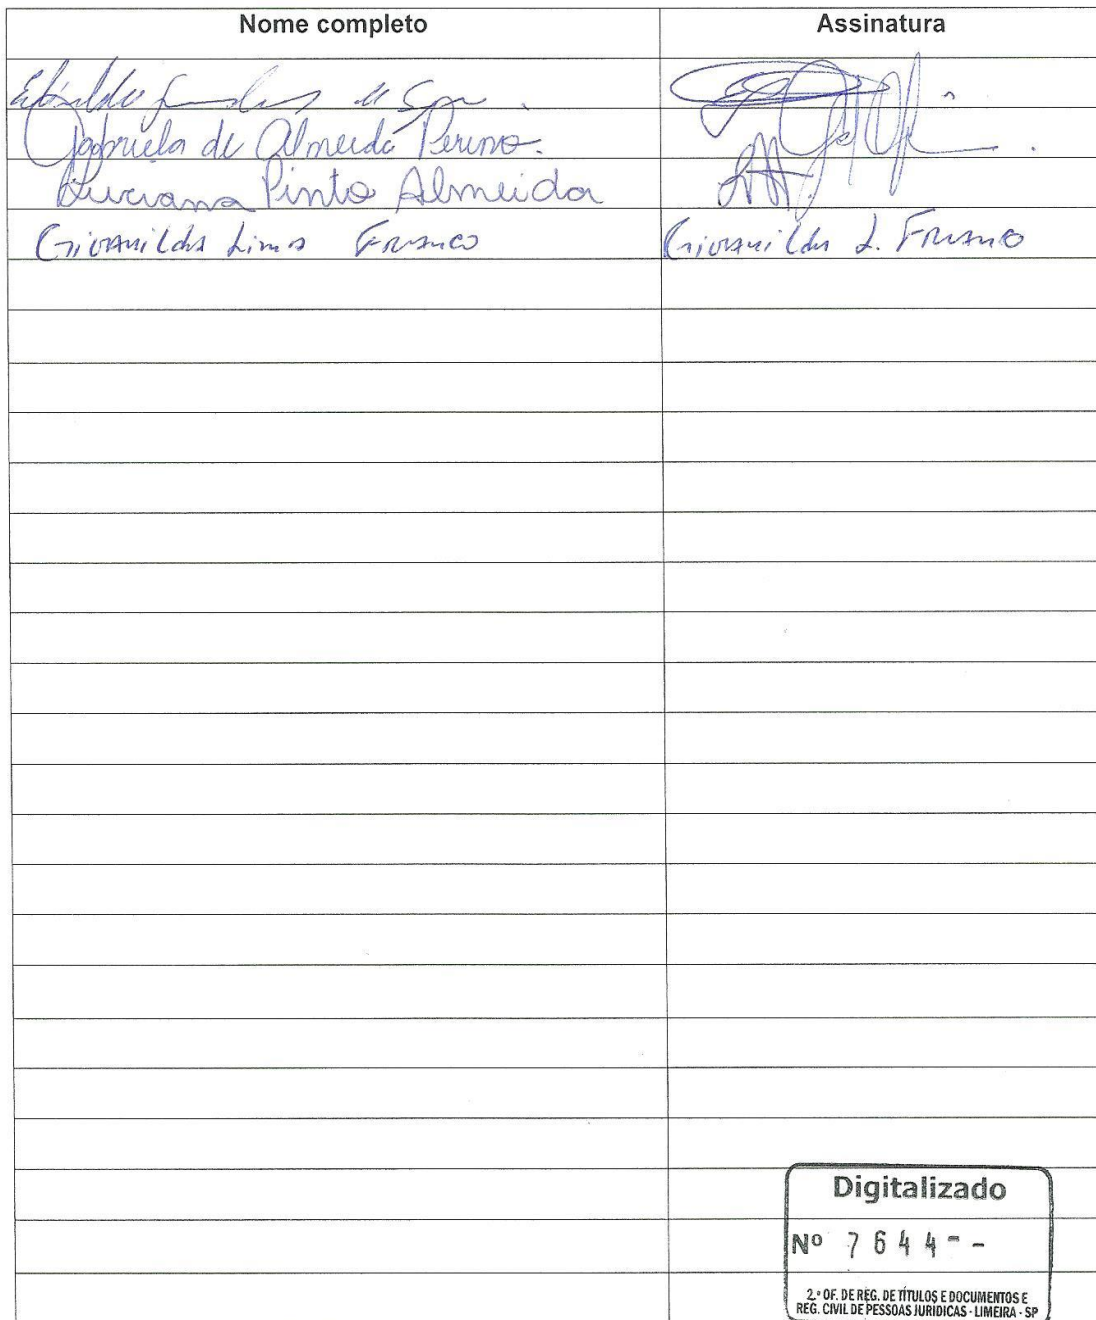 Nome completo Assinatura
Gabriela de Almeida Perino.
Luciana Pinto Almeida
Giovanilda Lima Franco Giovanilda L. Franco
Digitalizado
Nº 7644--
2.º OF. DE REG. DE TÍTULOS E DOCUMENTOS E
REG. CIVIL DE PESSOAS JURIDICAS - LIMEIRA - SP